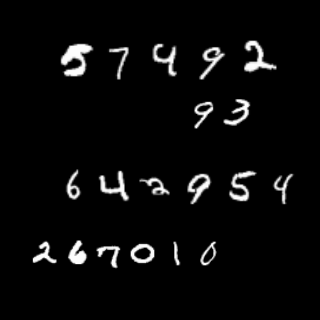 57492
93
642954
267010